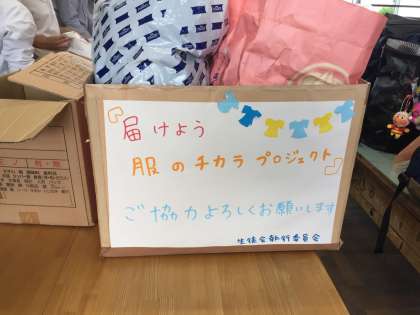 届けよう
服のチカラ プロジェクト
ご協力よろしくお願いします
生徒会執行委員会